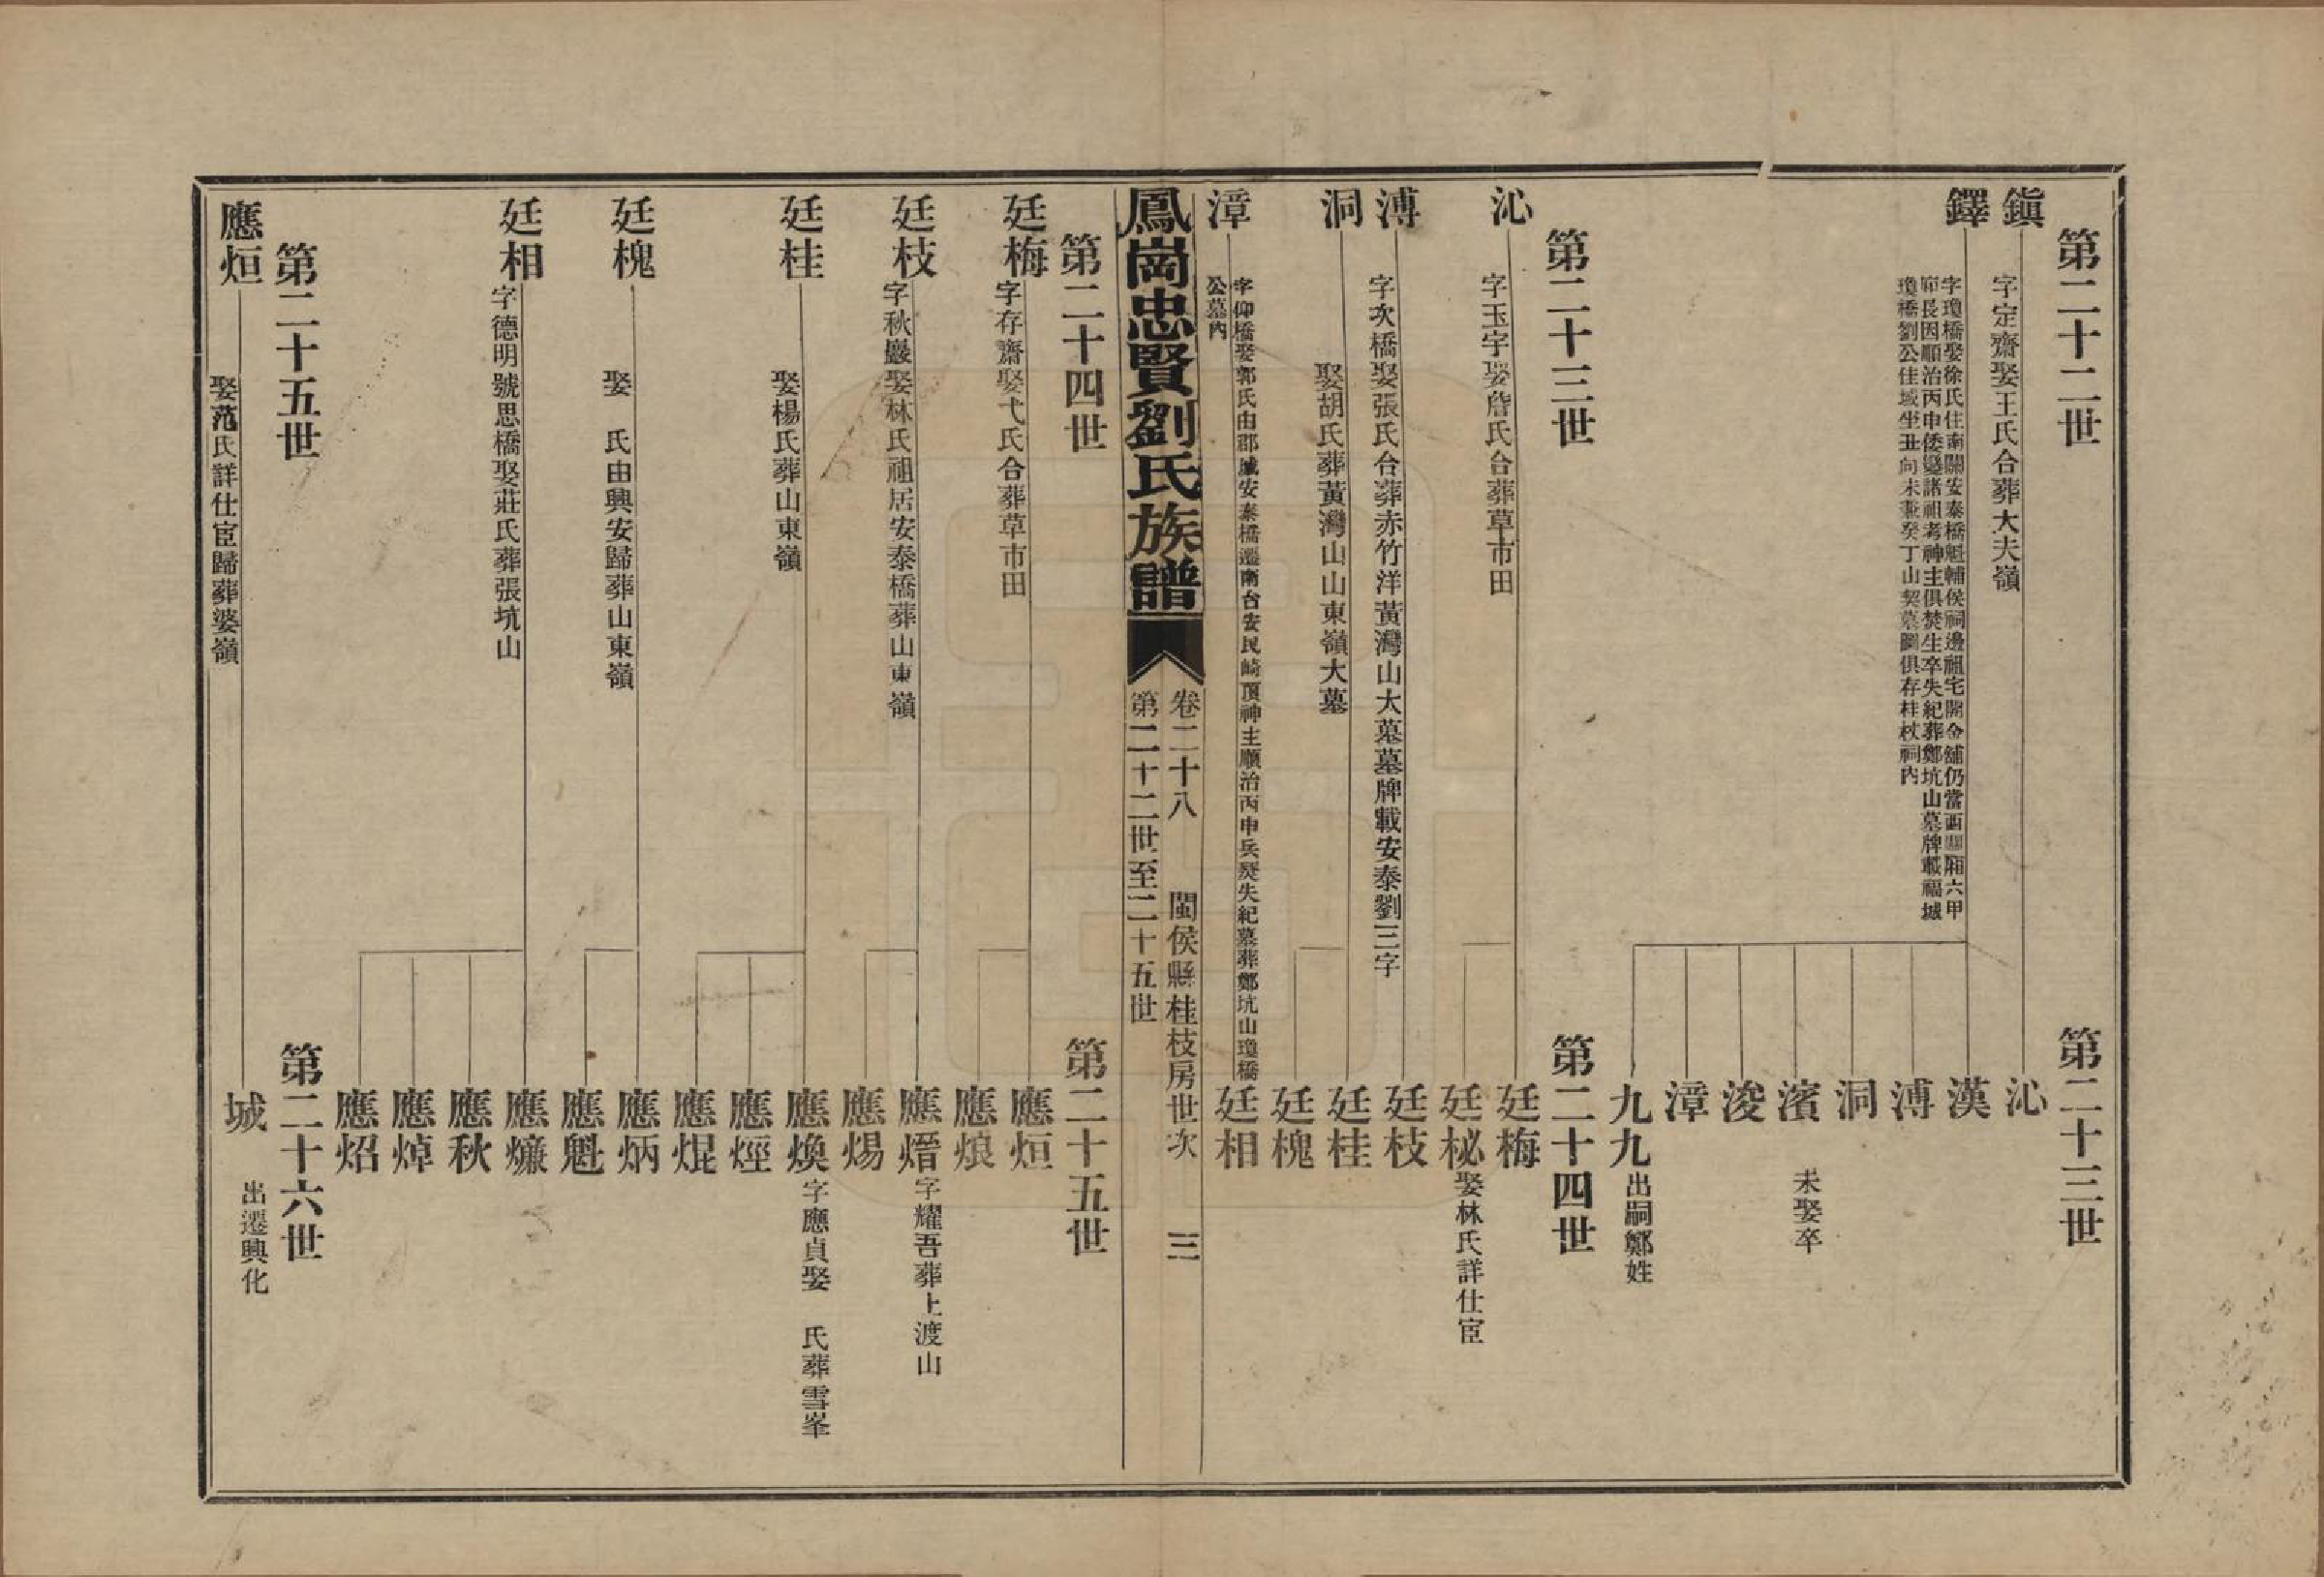 第二十二世
第二十三世
鎭
字定齋娶王氏合葬大夫嶺
沁
鐸
字瓊橋娶徐氏住南關安泰橋魁輔侯祠邊祖宅開金舖仍當西關廂六甲
長因順治丙申倭變諸祖考神主俱焚生卒失紀葬鄭坑山墓牌載福城
瓊橋劉公佳城坐丑向未兼癸丁山契墓圖俱存桂枝祠內
漢
溥
洞
濱
未娶卒
浚
漳
九九
出嗣鄭姓
第二十三世
第二十四世
沁
字玉宇娶詹氏合葬草市田
廷梅
廷秘
娶林氏詳仕宦
溥
字次橋娶張氏合葬赤竹洋黃灣山大墓墓牌載安泰劉三字
廷枝
洞
娶胡氏葬黃灣山山東嶺大墓
廷桂
廷槐
漳
字仰橋娶郭氏由郡城安泰橋遷南台安民崎頂神主順治丙申兵燹失紀墓葬鄭坑山瓊橋
公墓內
廷相
鳳崗忠賢劉氏族譜
卷二十八 閩侯縣桂枝房世次 三
第二十二世至二十五世
第二十四世
第二十五世
廷梅
字存齋娶弋氏合葬草市田
應烜
應烺
廷枝
字秋嚴娶林氏祖居安泰橋葬山東嶺
應熸
字耀吾葬上渡山
應煬
廷桂
娶楊氏葬山東嶺
應煥
字應貞娶 氏葬雪峯
應烴
應焜
廷槐
娶 氏由興安歸葬山東嶺
應炳
應魁
廷相
字德明號思橋娶莊氏葬張坑山
應熑
應秋
應焯
應炤
第二十五世
第二十六世
應烜
娶范氏詳仕宦歸葬婆嶺
城
出遷興化